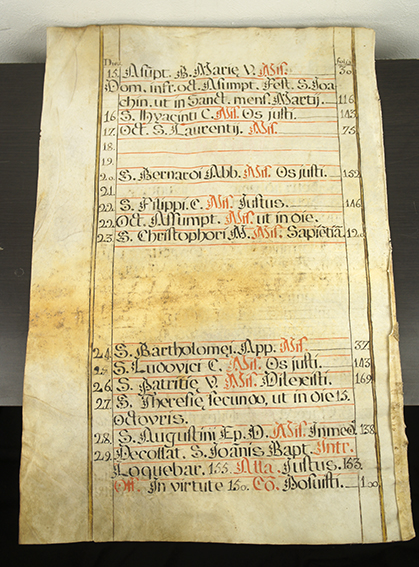 Dies. folio
15. Asūpt. B. Marię V. Mis. 30
Dom. infr. oct. Asumpt. Fest. S. Joa
chin, ut in Sanct. mens. Martij. 116
16. S. Hyacinti C. Mis. Os justi. 143
17. Oct. S. Laurentij. Mis. 75
18.
19.
20. S. Bernardi Abb. Mis. Os justi. 152
21.
22. S. Filippi. C. Mis. Justus. 146
22. Oct. Assumpt. Mis. ut in die.
23. S. Christophori M. Mis. Sapiētiā. 120
24. S. Bartholomęi. App. Mis. 37
25. S. Ludovici C. Mis. Os justi. 143
26. S. Patritię V. Mis. Dilexisti. 169
27. S. Theresię secundo, ut in die 15.
Octovris.
28. S. Augustini Ep. D. Mis. In med. 138
29. Decollat. S. Joanis Bapt. Intr.
Loquebar. 155. Alla. Justus. 153.
Off. In virtute 150. Cō. Posuisti. 100